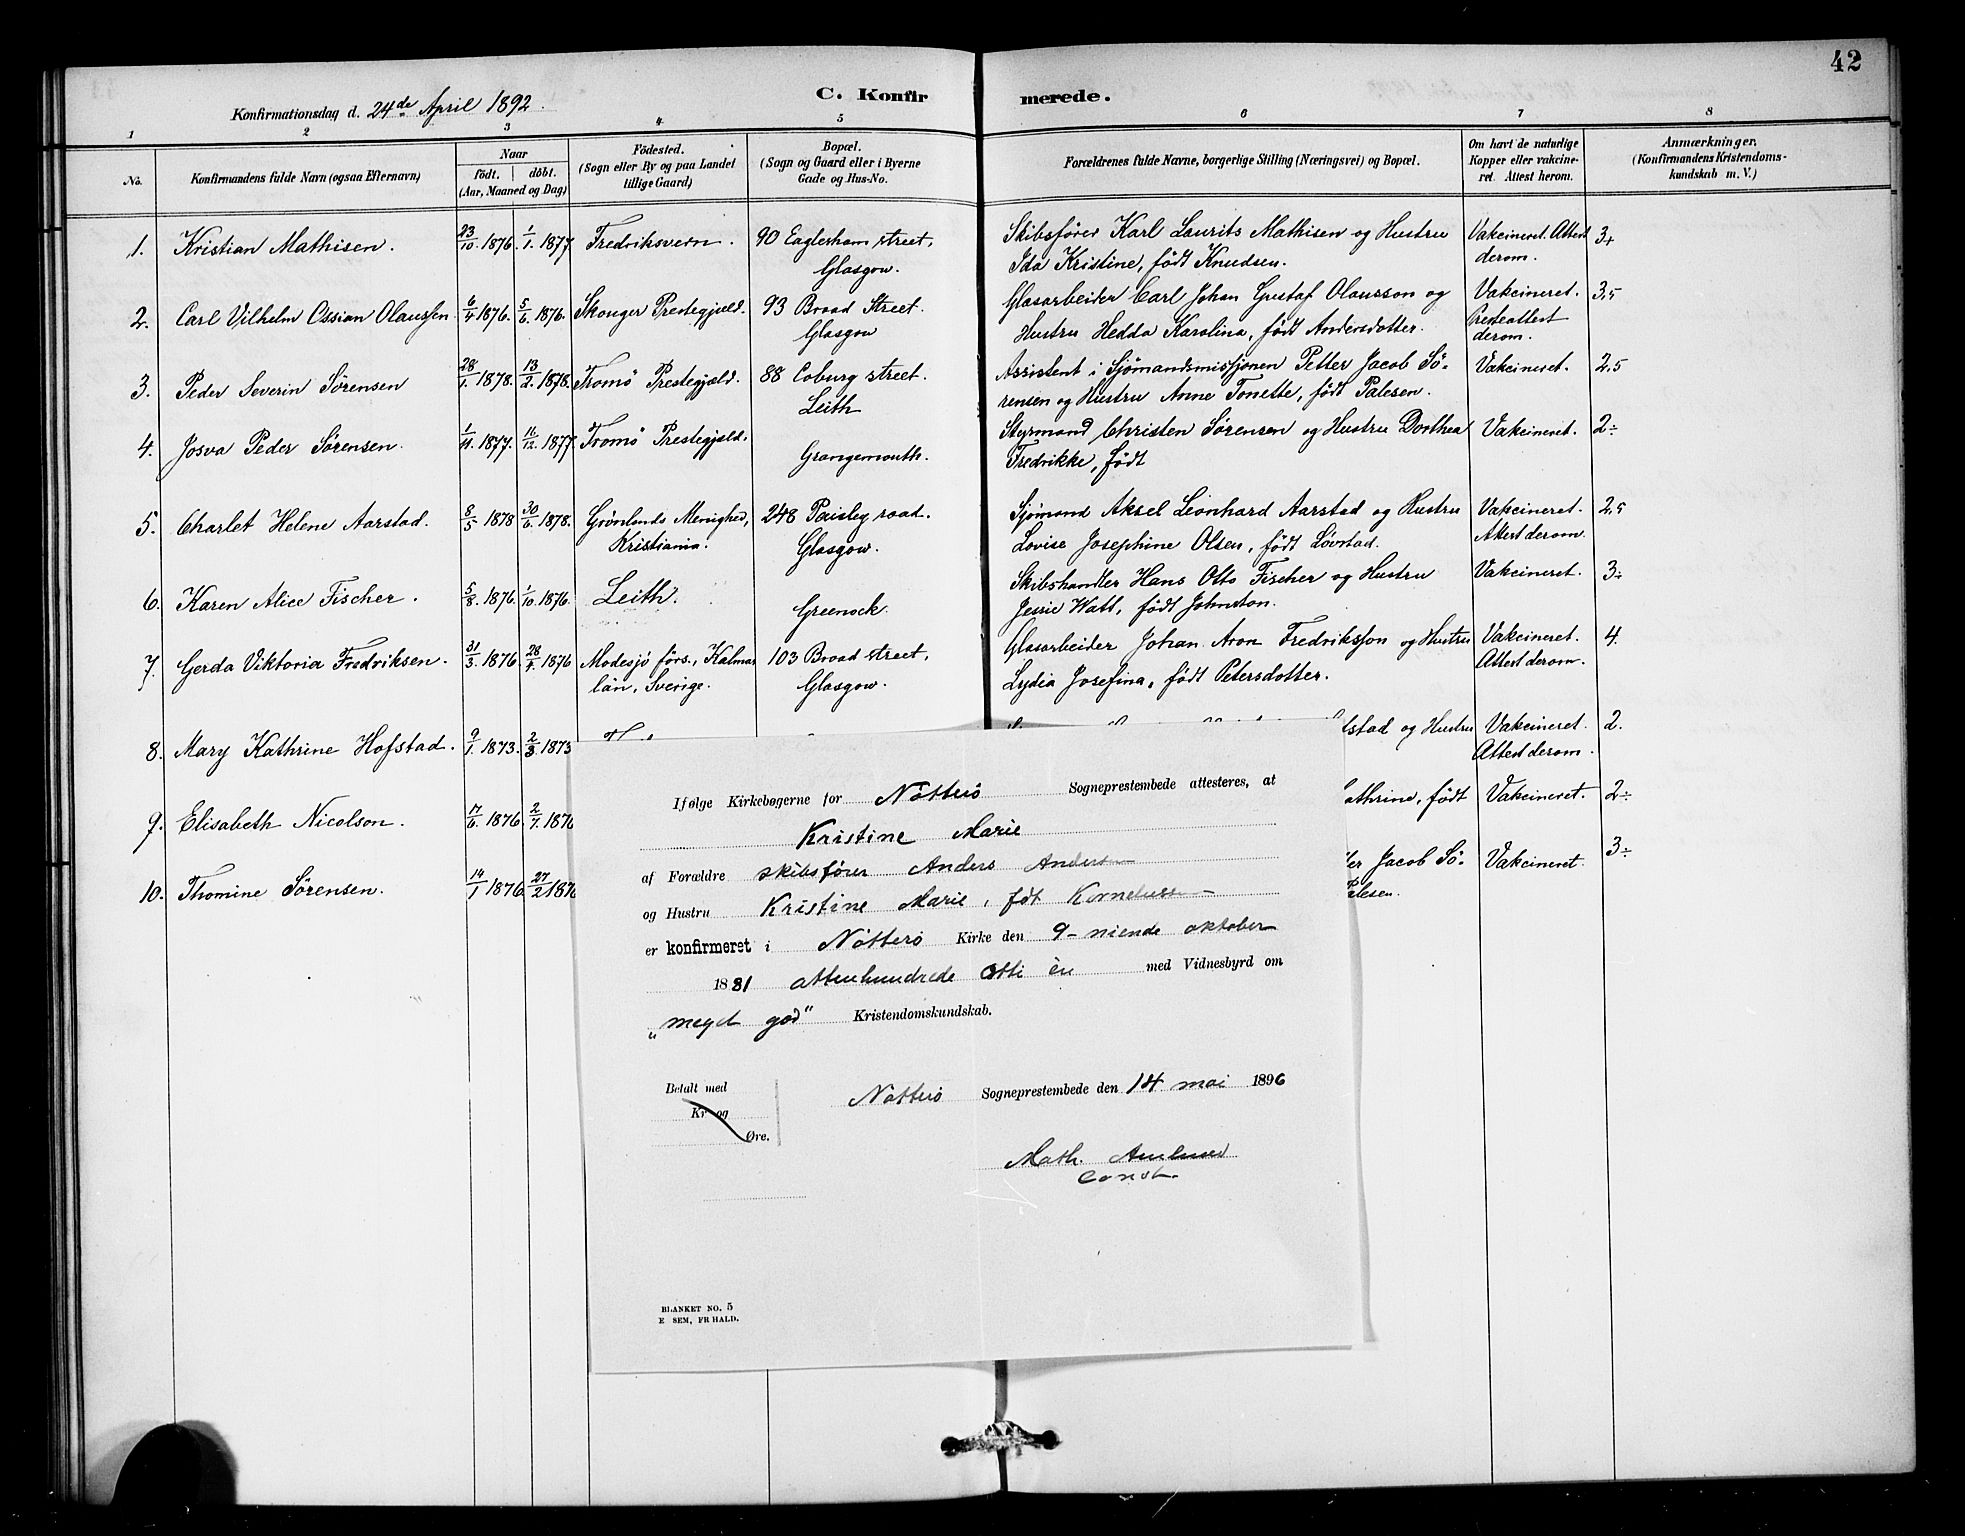 42
C. Konfirmerede.
Konfirmationsdag d. 24de April 1892.
1 2 3 4 5 6 7 8
No.
Konfirmandens fulde Navn (ogsaa Efternavn)
Naar
födt. döbt.
(Aar, Maaned og Dag)
Födested.
(Sogn eller By og paa Landet
tillige Gaard)
Bopæl.
(Sogn og Gaard eller i Byerne
Gade og Hus-No.
Forældrenes fulde Navne, borgerlige Stilling (Næringsvei) og Bopæl.
Om havt de naturlige
Kopper eller vakcine-
ret. Attest herom.
Anmærkninger.
(Konfirmandens Kristendoms-
kundskab m. V.)
1. Kristian Mathisen. 23/10 1876. 1/1 1877. Fredriksvern. 90 Eaglesham street, Skibsfører Karl Laurits Mathisen og Hustru Vakcineret. Attest 3+
Glasgow. Ida Kristine, født Knudsen. derom.
2. Carl Vilhelm Ossian Olaussen 6/4 1876. 5/6 1876. Skouger Prestegjæld. 93 Broad Street. Glasarbeider Carl Johan Gustaf Olausson og Vakcineret. 3,5
Glasgow Hustru Hedda Karolina, født Andersdotter. Presteattest
derom.
3. Peder Severin Sørensen 28/1 1878. 13/2 1878. Tromö Prestegjæld. 88 Coburg street. Assistent i Sjømandsmissjonen Petter Jacob Sö- Vakcineret. 2,5
Leith rensen og Hustru Anne Tonette, født Palesen.
4. Josva Peder Sørensen. 1/11 1877. 16/12 1877 Tromö Prestegjæld. Grangemouth. Styrmand Christen Sørensen og Hustru Dorthea Vakcineret. 2÷
Fredrikke, født
5. Charlet Helene Aarstad. 8/5 1878 30/6 1878. Grönlands Menighed, 248 Paisley road. Sjømand Aksel Leonhard Aarstad og Hustru Vakcineret. 2,5
Kristiania. Glasgow. Lovise Josephine Olsen, født Løvstad. Attest derom.
6. Karen Alice Fischer. 5/8 1876. 1/10 1876. Leith. Greenock Skibshandler Hans Otto Fischer og Hustru Vakcineret. 3÷
Jessie Watt, født Johnston.
7. Gerda Viktoria Fredriksen. 31/3 1876. 28/4 1876 Modesjö förs., Kalmar 103 Broad street, Glasarbeider Johan Aron Fredriksson og Hustru Vakcineret. 4.
län, Sverige. Glasgow. Lydia Josefina, født Petersdotter. Attest derom.
8. Mary Kathrine Hofstad. 9/1 1873. 2/3 1873 fstad og Hustru Vakcineret. 2.
Attest derom.
9. Elisabeth Nicolson. 17/6 1876 2/7 1876 athrine, født Vakcineret. 2÷
10. Thomine Sørensen. 14/1 1876 27/2 1876 ter Jacob Sö- Vakcineret. 3÷
Palesen.
Ifølge Kirkebøgerne for Nötterö Sogneprestembede attesteres, at
Kristine Marie
af Forældre skibsfører Anders Andersen
og Hustru Kristine Marie, fdt Korneliussen
er konfirmeret i Nötterö Kirke den 9- niende oktober
1881 attenhundrede otti én med Vidnesbyrd om
„meget god” Kristendomskundskab.
Betalt med
Kr og
Øre.
Nötterö Sogneprestembede den 14 mai 1896
Math.
const.
BLANKET NO. 5
E SEM, FR HALD.